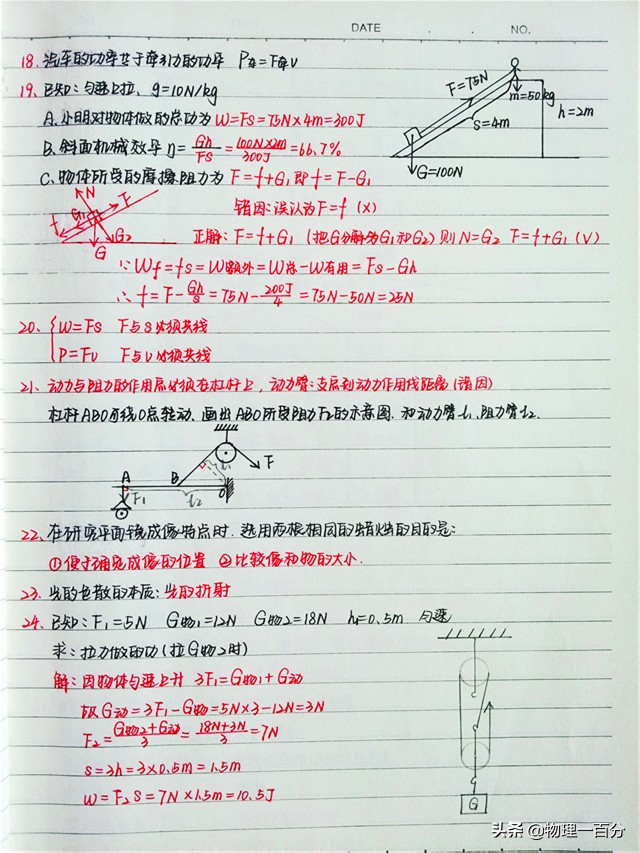 DATE . . NO.
18. 汽车的功率等于牵引力的功率 P车=F牵v
19、已知：匀速上拉，g=10N/kg
F=75N
m=50kg
h=2m
S=4m
G=100N
A.小明对物体做的总功为 W=FS=75N×4m=300J
B.斜面机械效率 η=Gh/FS=100N×2m/300J=66.7%
C.物体所受的摩擦阻力为 F=f+G1 即 f=F-G1
错因：误认为F=f (×)
N
F
G1
f
G2
G
正解：F=f+G1 (把G分解为G1和G2) 则N=G2 F=f+G1 (√)
∵Wf=fs=W额外=W总-W有用=FS-Gh
∴f=F-Gh/S=75N-200J/4=75N-50N=25N
20、{W=FS F与S必须共线
P=Fv F与v必须共线
21、动力与阻力的作用点必须在杠杆上，动力臂：支点到动力作用线距离(错因)
杠杆ABO可绕O点转动，画出ABO所受阻力F2的示意图，和动力臂L1、阻力臂L2.
A
B
F
F1
L1
L2
O
22、在研究平面镜成像特点时，选用两根相同的蜡烛的目的是：
①便于确定成像的位置 ②比较像和物的大小.
23、光的色散的本质：光的折射
24、已知：F1=5N G物1=12N G物2=18N h=0.5m 匀速
求：拉力做的功(拉G物2时)
解：因物体匀速上升 3F1=G物1+G动
故G动=3F1-G物=5N×3-12N=3N
F2=G物2+G动/3=18N+3N/3=7N
S=3h=3×0.5m=1.5m
W=F2S=7N×1.5m=10.5J
G
头条 @物理一百分